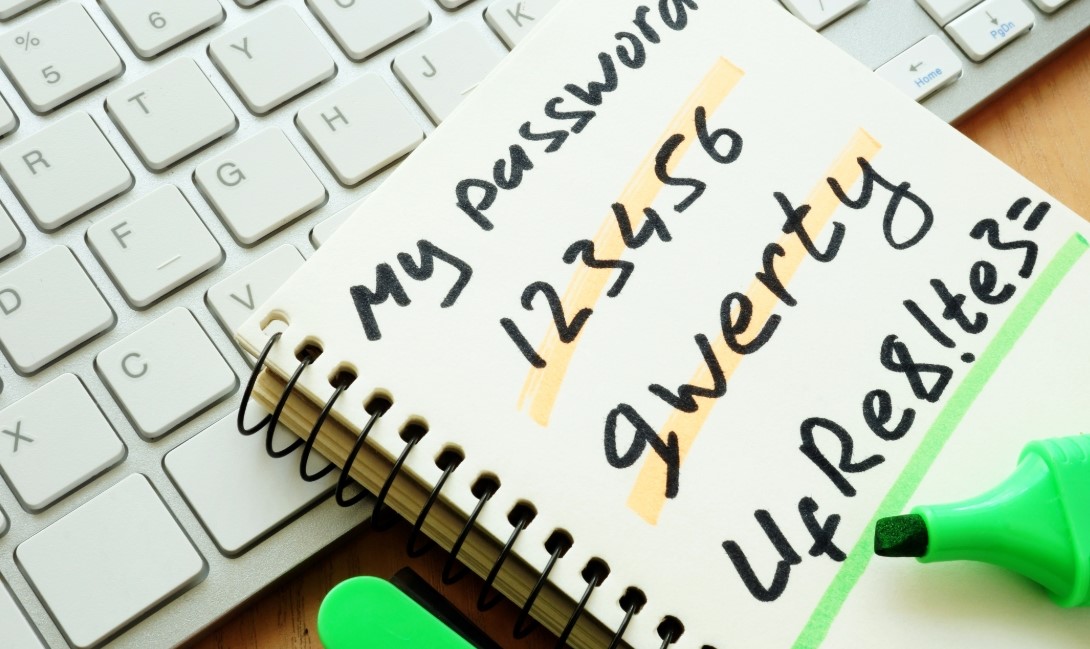 My password
123456
qwerty
UfRe8!te3=
%
5
6
Y
U
K
T
H
J
R
G
F
D
V
C
X
Home
PgDn